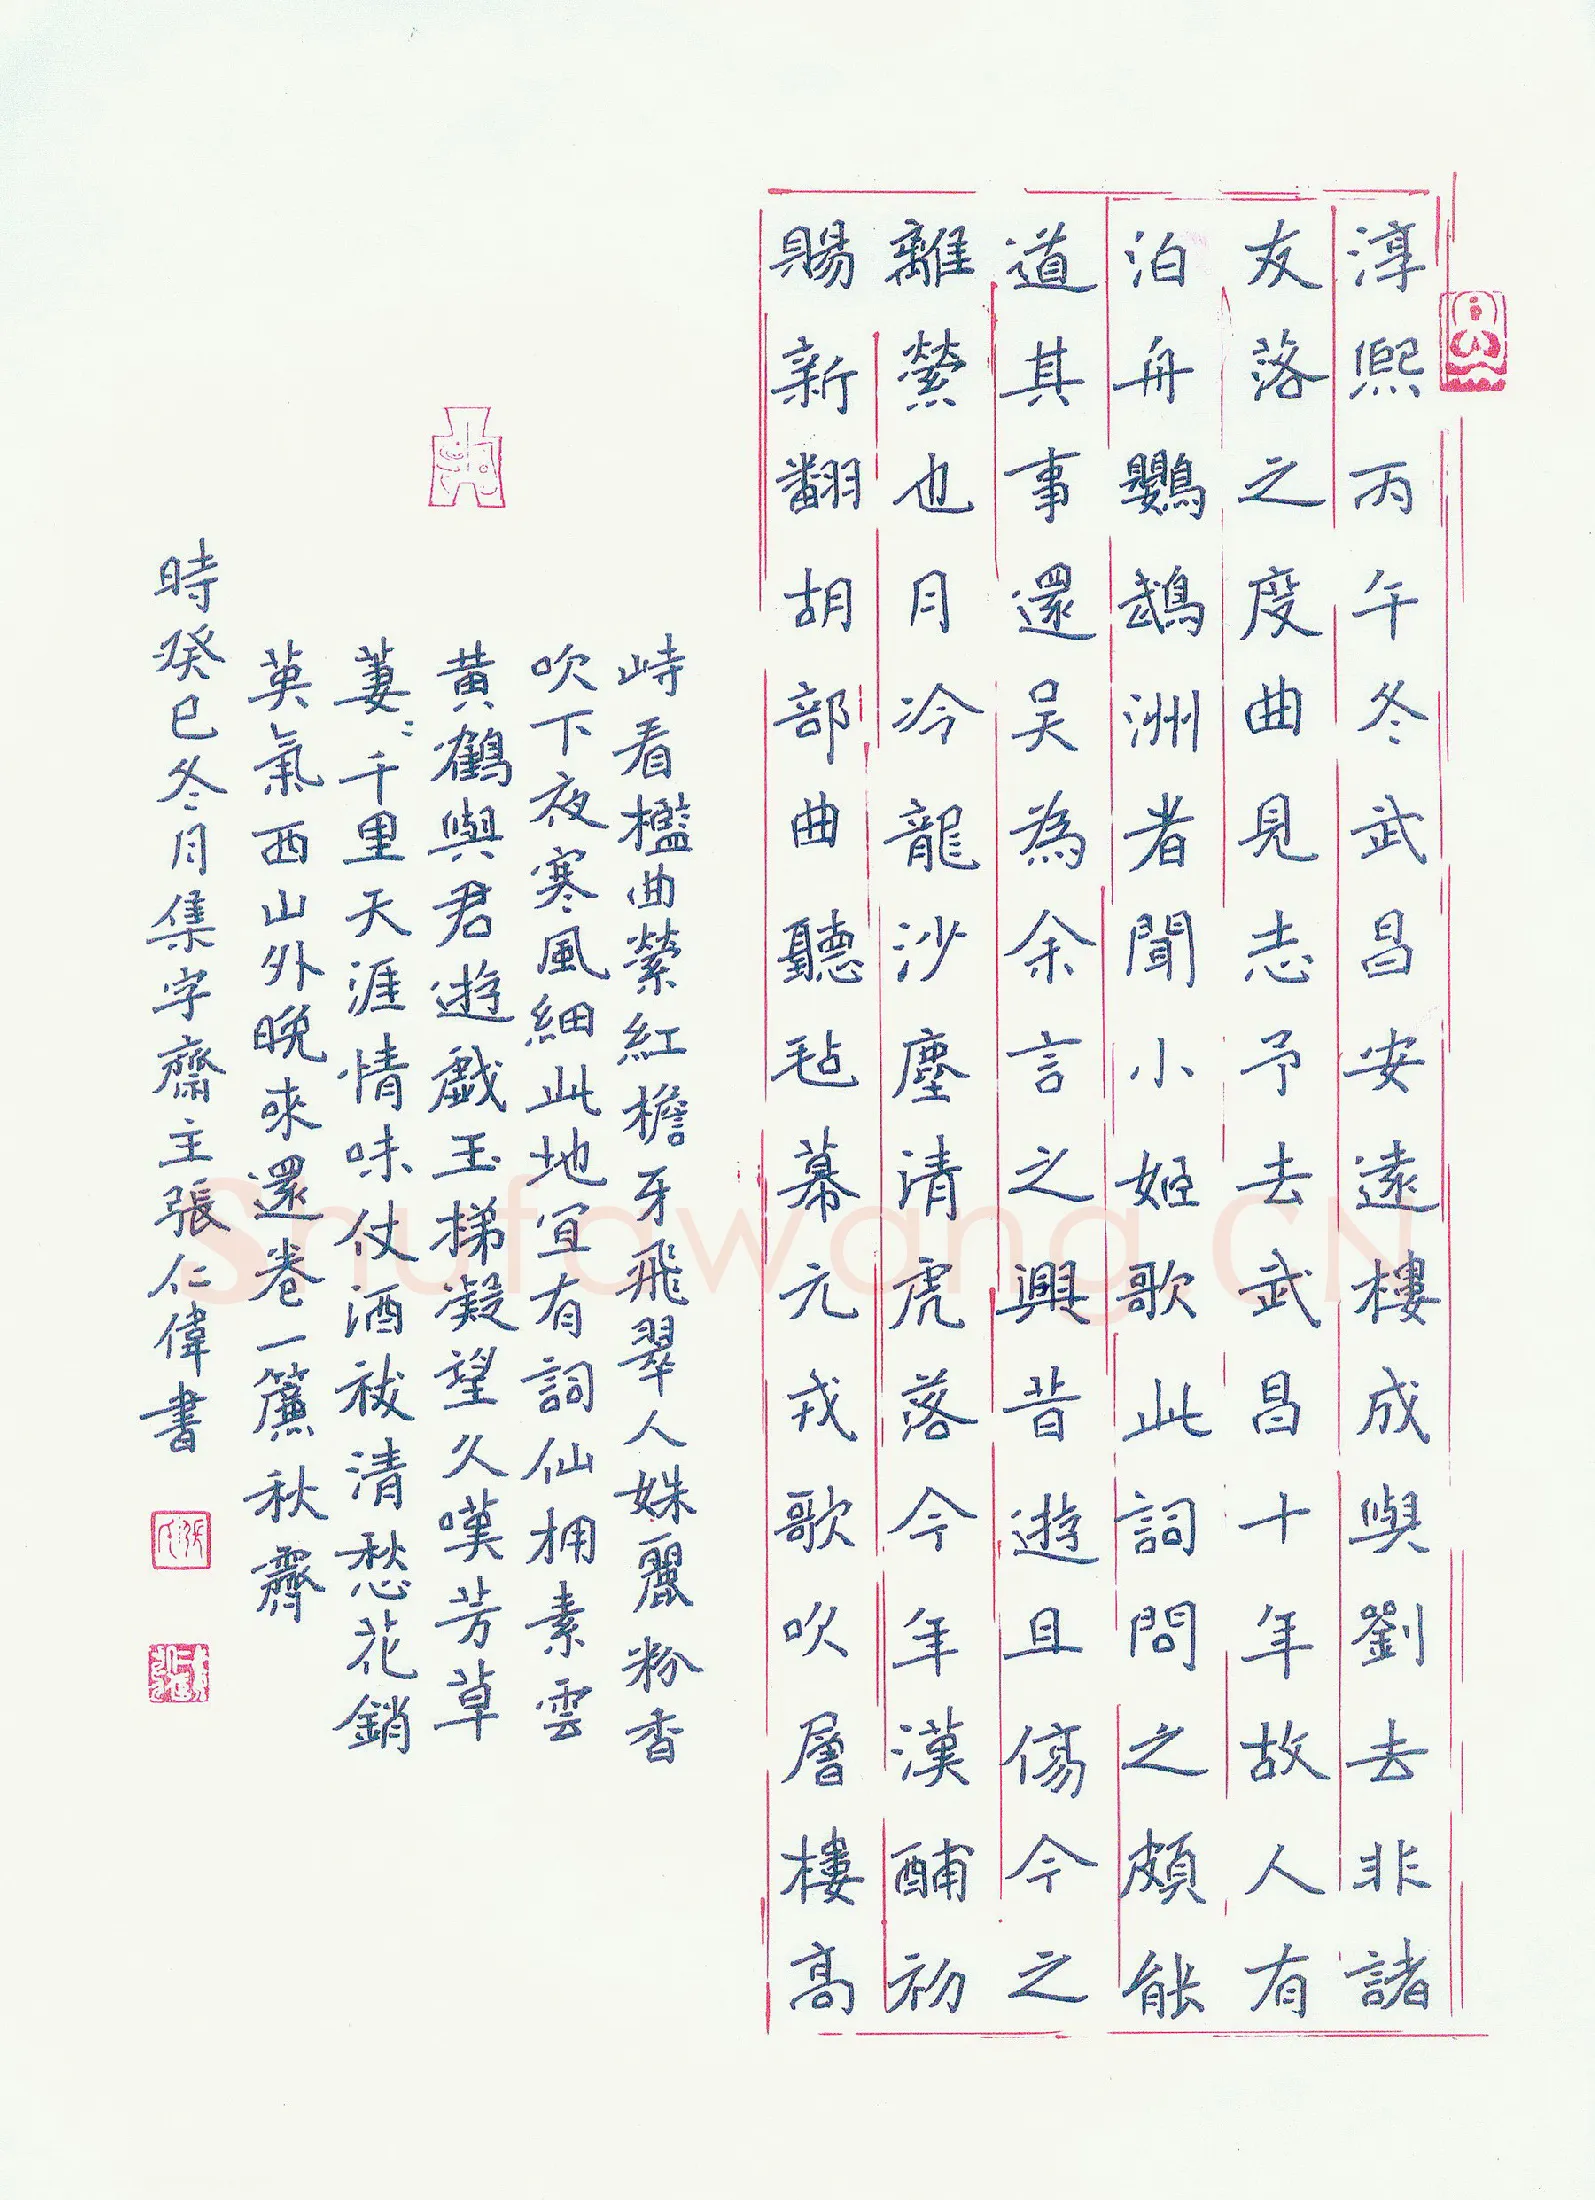 淳熙丙午冬武昌安遠樓成與劉去非諸
友落之度曲見志予去武昌十年故人有
泊舟鸚鵡洲者聞小姬歌此詞問之頗能
道其事還吴為余言之興昔遊且傷今之
離縈也月冷龍沙塵清虎落今年漢酺初
賜新翻胡部曲聽氈幕元戎歌吹層樓高
峙看檻曲縈紅檐牙飛翠人姝麗粉香
吹下夜寒風細此地宜有詞仙擁素雲
黄鶴與君遊戲玉梯凝望久嘆芳草
萋:千里天涯情味仗酒祓清愁花銷
英氣西山外晚來還卷一簾秋霽
時癸巳冬月集字齋主張仁偉書
Shufawang.CN